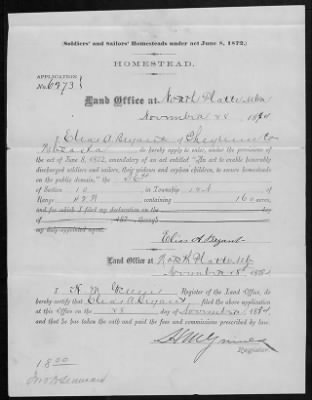 (Soldiers' and Sailors' Homesteads under act June 8, 1872.)
HOMESTEAD.
APPLICATION
No. 6273
Land Office at North Platte Neb
November 28 1884
I, Elias A. Bryant of Cheyenne Co
Nebraska do hereby apply to enter, under the provisions of
the act of June 8, 1872, amendatory of an act entitled "An act to enable honorably
discharged soldiers and sailors, their widows and orphan children, to secure homesteads
on the public domain," the
of Section 10 , in Township
Range containing 160 acres,
and for which I filed my declaration on the day
of 187 , through
my duly appointed agent.
Elias A. Bryant
Land Office at North Platte Neb
November 28 1884
I, Register of the Land Office, do
hereby certify that Elias A Bryant, filed the above application
at this Office on the 28 day of November 1884
and that he has taken the oath and paid the fees and commissions prescribed by law.
Register.
18 00